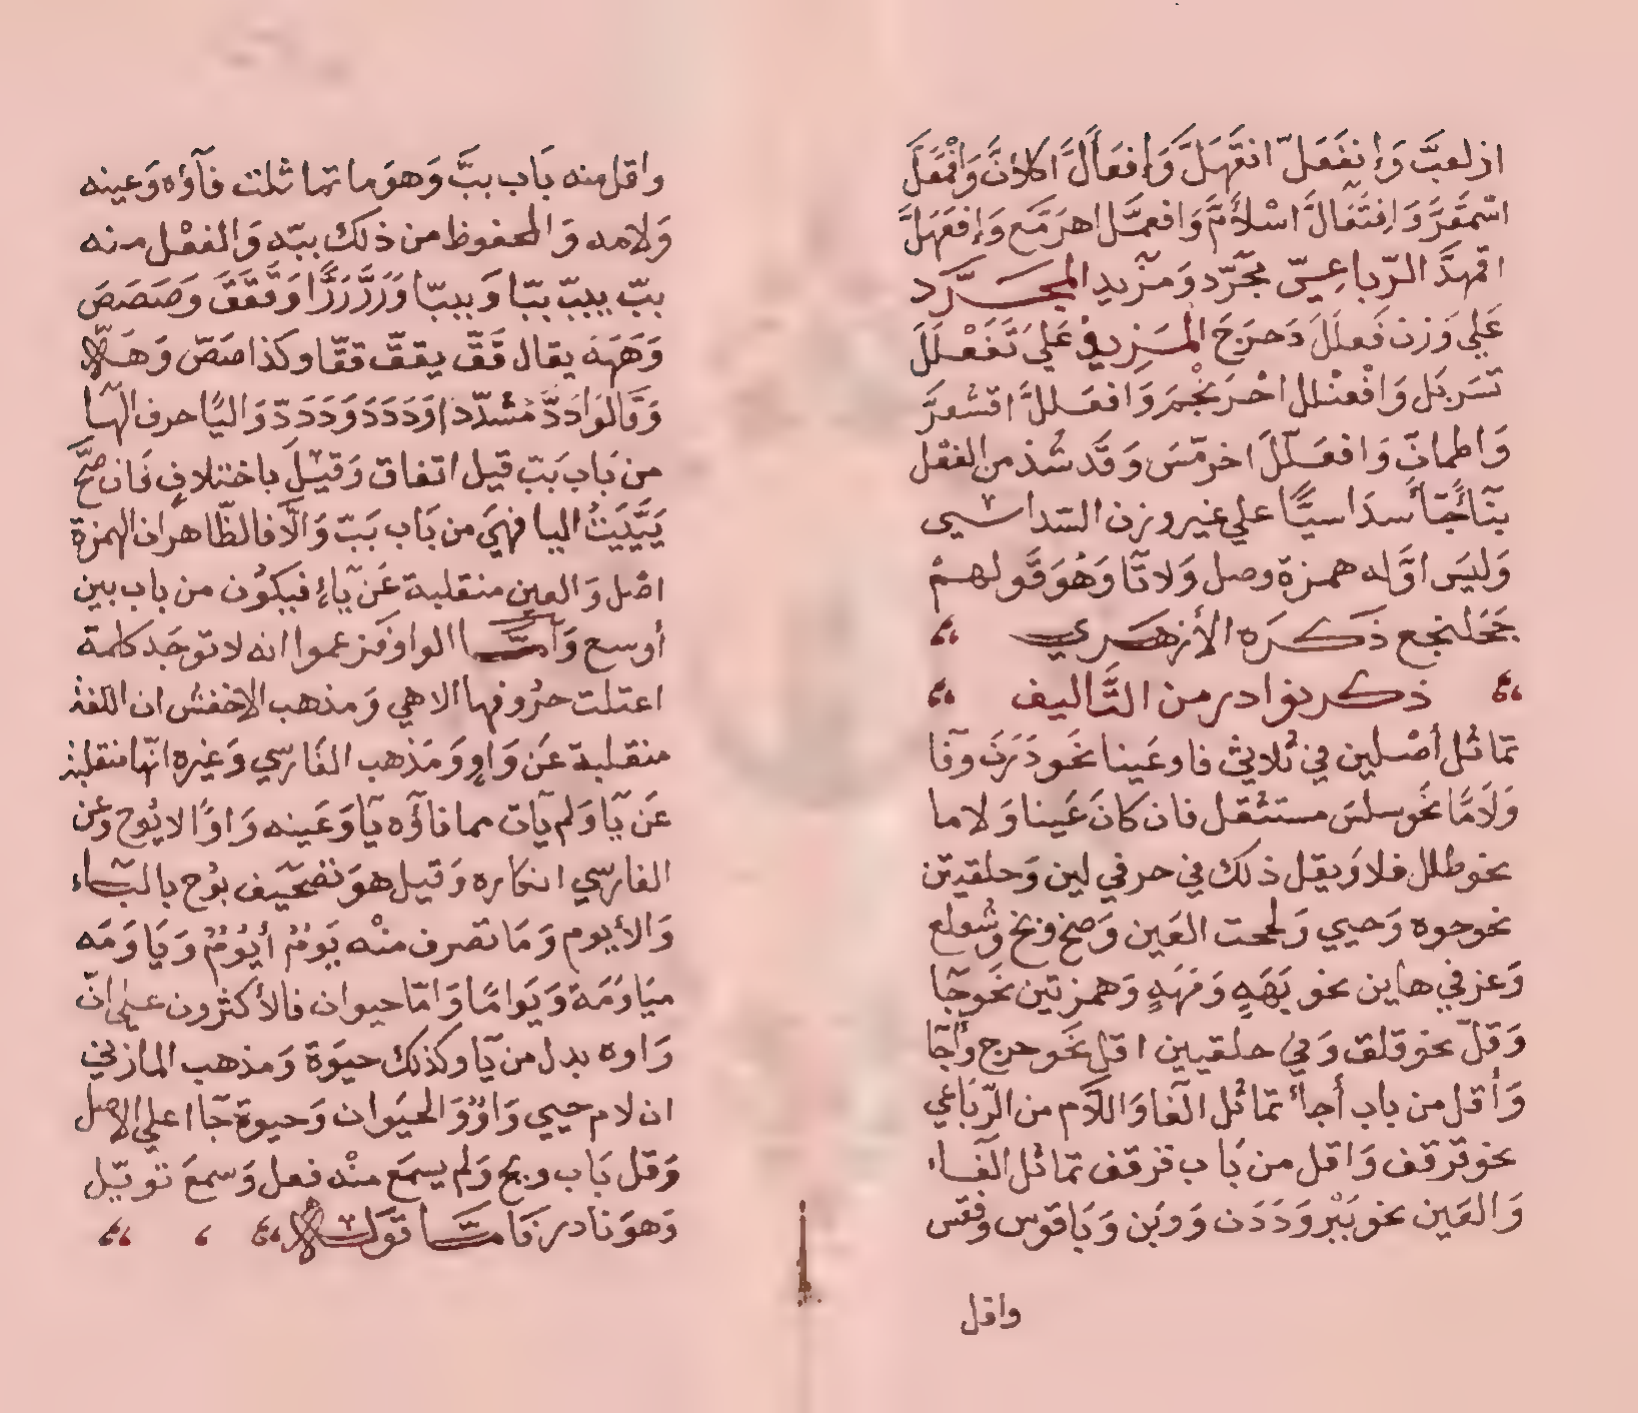 ازلعبَّ وَإنفَعَلّ انقَهَلَّ وَإفعَألَّ اكلأنَّ وَافْمَعَلَّ
اسْمقَرَّ وَافتَعَالَّ اسْلأمَّ وَافعمَّل اهرَمَّع وَإفعَهَلَّ
اقمهدَّ الرّباعيّ مجَرّد وَمزيد المجَرَّد
عَلي وَزن فَعلَلَ دَحرَجَ المَزيد عَليٰ تَفَعْلَلَ
تسَربَل وَافْعنْلل احْرَنْجَمَ وَافعَللَّ اقشعرَّ
وَاطمانّ وَافعَلّلَ اخرمّسَ وَقَد شذ من الفعْل
بنَآ جَآ سدَاسيًّا علي غير وزن السّداسي
وَليَس اوَّله همزة وصل وَلا تآ وَهُوَ قَولهمْ
جَحلنجع ذكرَه الأزهَري
ذكر نوادر من التَّاليف
تماثل أصْلين في ثلاثيّ فا وعَينا نحَو دَدَن وَفا
وَلَامًا نحَو سلسَ مستثقل فان كانَ عَينا وَلاما
نحو طلل فلا وَيقل ذلك في حرفي لين وَحلقيتن
نحو حوه وَحيي وَلححت العَين وَصخ وبخ وشُعلع
وَعز في هاين نحو يَهَهٍ وَمَهَهٍ وَهمزتين نحَو جآ
وَقلّ نحو قلق وَفي حلقيين اقل نحَو حرح وَأجآ
وَأقل من باب أجأ تماثل الفا وَاللّام من الرّبَاعي
نحو قرقف وَاقل من بَاب قرقف تماثل الفآء
وَالعَين نحو بَبْر وَدَدَن وَوبن وَبَاقوس وَققس
واقل
واقل منه بَاب ببَّ وَهوَ ما تماثلت فآؤه وَعينه
وَلامه وَالمحفوظ من ذلك ببّه وَالفعْل منه
ببّ يببّ ببّا وَببببّا وَزَرَّ زَرًّا وَقَقَقَ وَصَصَصَ
وَهَهَه يقال قَقّ يققّ ققّا وكذا صَصّ وَهَهّ
وَقَالوا دَدّ مُشدّد اوَدَدَد وَدَدَدّ وَاليَا حرف الهجآ
من بَاب بَبّ قيل اتفاق وَقيلَ باختلافٍ فَان صحَّ
يَيَّيْتُ اليا فهيَ من بَاب بَبّ وَالّا فالظّاهر ان الهمزة
اصْل وَالعين منقلبة عَن يآءٍ فيكوُن من باب بين
أوسع وَآمّا الواو فزعموا انه لا توجَد كلمة
اعتلت حرُوفها الا هي وَمذهب الاخفش ان الفه
منقلبة عَن وَاوٍ وَمَذهب الفَارسي وَغيره انّها منقلبة
عَن يآ وَلم يآت مما فآؤه يآ وَعَينه وَاوًا الا يُوح وعَن
الفارسي انكاره وَقيل هوَ تصحيف بوُح بالبآء
وَالأيوم وَمَا تصرف منْه يَوَمُ أيوُمُ وَيَاوَمَه
ميَاوَمَة وَيَوامًا وَامّا حيوان فالأكثرون علىٰ انّ
وَاوه بدل من يآ وكذلك حيوَة وَمذهب المازني
ان لام حيي وَاوٌ وَالحيَوان وَحيوة جآا علي الاصل
وَقل بَاب ويح وَلم يسمَع منْه فعل وَسمعَ تَويّل
وَهوَ نادر فَامّا قَول